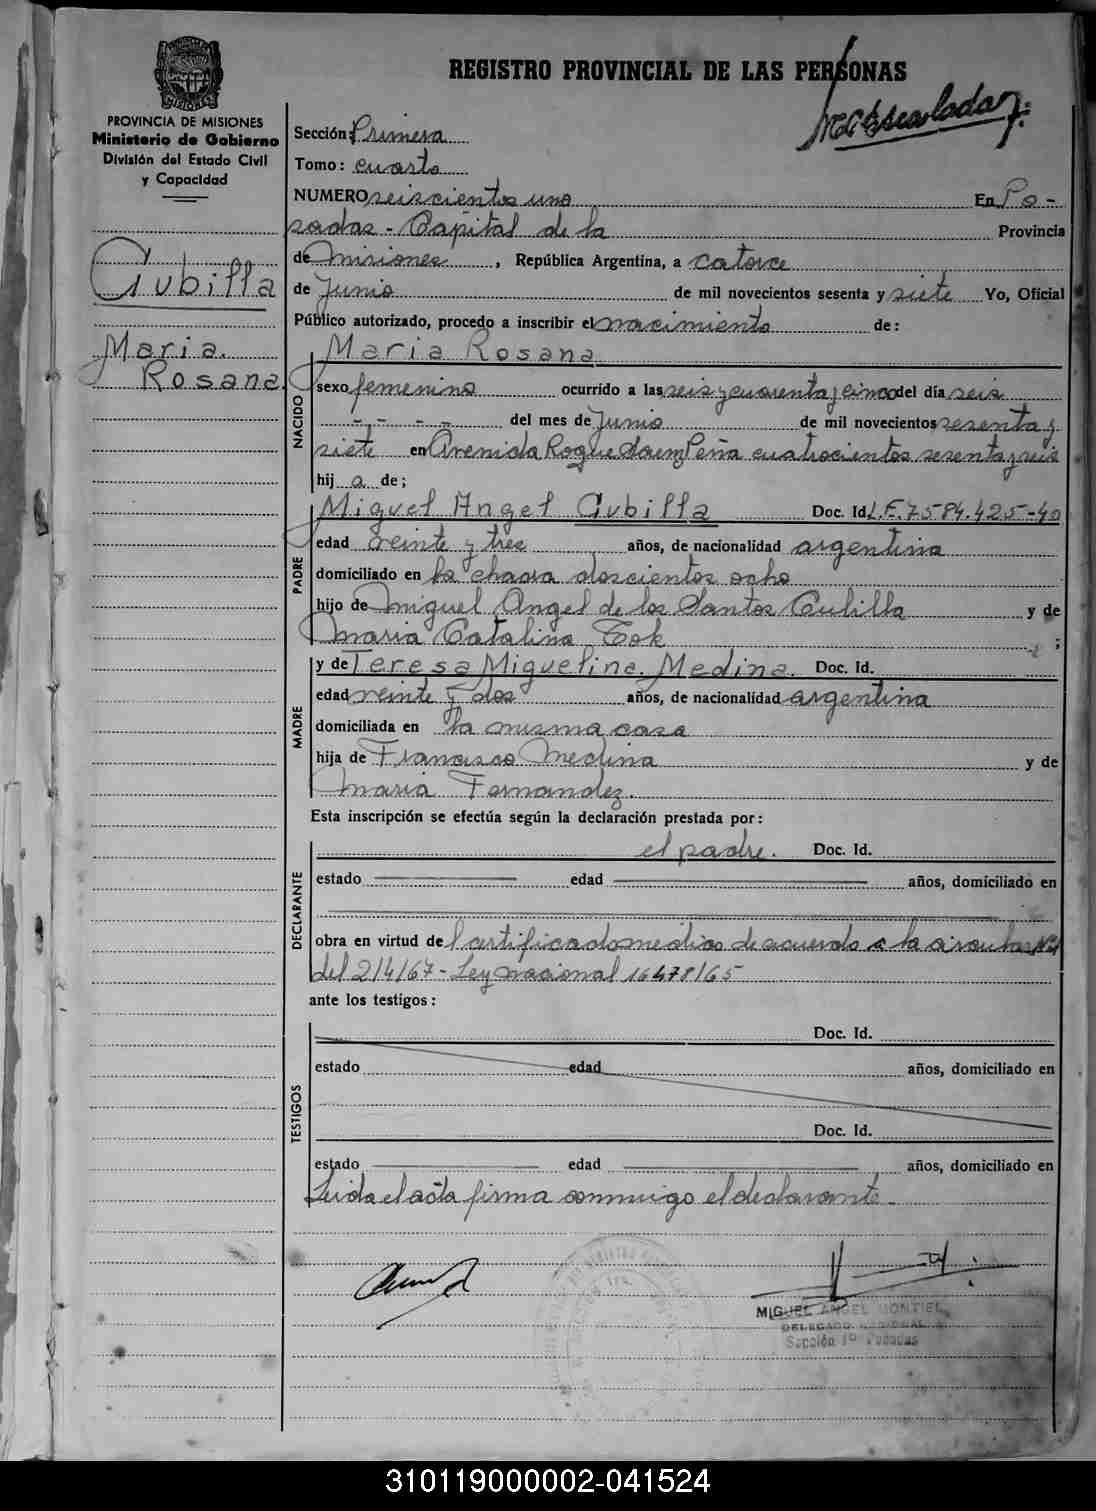 REGISTRO PROVINCIAL DE LAS PERSONAS
MISIONES
PROVINCIA DE MISIONES
Ministerio de Gobierno
División del Estado Civil
y Capacidad
Cubilla
Maria
Rosana
Sección: Primera
Tomo: cuarto
NUMERO seiscientos uno En Po-
sadas - Capital de la Provincia
de Misiones, República Argentina, a catorce
de Junio de mil novecientos sesenta y siete Yo, Oficial
Público autorizado, procedo a inscribir el nacimiento de:
NACIDO
Maria Rosana
sexo femenino ocurrido a las seis y cuarenta y cinco del día seis
del mes de Junio de mil novecientos sesenta y
siete en Avenida Roque Saenz Peña cuatrocientos sesenta y seis
hij a de;
PADRE
Miguel Angel Cubilla Doc. Id. L.E. 7584.425-40
edad veinte y tres años, de nacionalidad argentina
domiciliado en la chacra doscientos ocho
hijo de Miguel Angel de los Santos Cubilla y de
Maria Catalina Tok ;
MADRE
y de Teresa Miguelina Medina. Doc. Id.
edad veinte y dos años, de nacionalidad argentina
domiciliada en la misma casa
hija de Francisco Medina y de
Maria Fernandez.
Esta inscripción se efectúa según la declaración prestada por:
DECLARANTE
el padre. Doc. Id.
estado edad años, domiciliado en
obra en virtud del certificado medico de acuerdo a la circular Nº
del 2/4/67 - Ley nacional 16478/65
ante los testigos:
TESTIGOS
Doc. Id.
estado edad años, domiciliado en
Doc. Id.
estado edad años, domiciliado en
Leida el acta firma conmigo el declarante
MIGUEL ANGEL MONTIEL
DELEGADO
Sección 1º Posadas
310119000002-041524